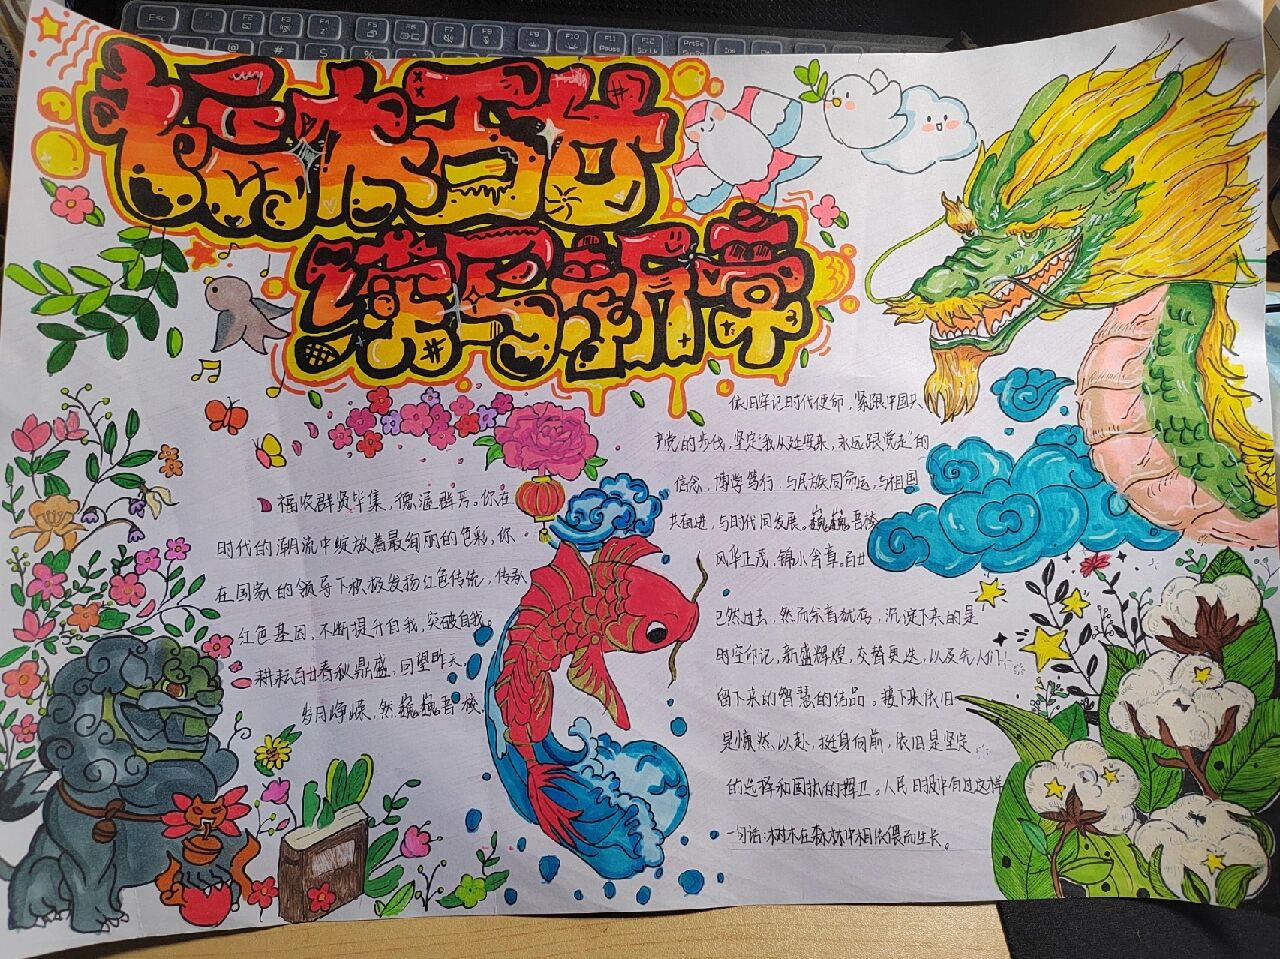 振木百廿
续写新章
福次群贤毕集，德涵群芳。你在
时代的潮流中绽放着最绚丽的色彩，你
在国家的领导下积极发扬红色传统，传承
红色基因，不断提升自我，突破自我。
耕耘百廿春秋鼎盛，回望昨天，
岁月峥嵘，然巍巍吾校
依旧牢记时代使命，紧跟中国共
产党的步伐，坚定"我从延安来，永远跟党走"的
信念，博学笃行，与民族同命运，与祖国
共奋进，与时代同发展。巍巍吾校
风华正茂，锦小含真。百廿
已然过去，然而余音犹存，沉淀下来的是
时空印记，新盛辉煌，交替更迭，以及先人们
留下来的智慧的结晶。接下来依旧
是慷然以赴，挺身向前，依旧是坚定
的选择和固执的捍卫。人民日报中有过这样
一句话：树木在森林中相依偎而生长。
Esc
F1
F2
F3
F4
F5
F6
F7
F8
F9
F10
F11
F12